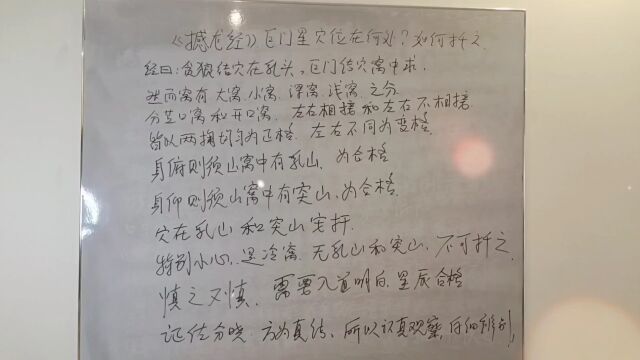 《撼龙经》巨门星穴位在何处？如何扦之
经曰：贪狼结穴在乳头，巨门结穴窝中求
然而窝有大窝、小窝、深窝、浅窝之分
分 口窝和开口窝、左右相搂和左右不相搂
皆以两掬均匀为正格，左右不同为变格
身俯则须山窝中有乳山，为合格
身仰则须山窝中有突山，为合格
穴在乳山和突山 扦
特别小心，是冷窝、无乳山和突山、不可扦之
慎之又慎、需要入道明白、星辰合格
证佐分晓、方为真结、所以认真观察，仔细辨别，